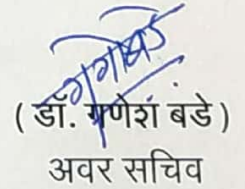 ( डॉ. गणेश बंडे )
अवर सचिव